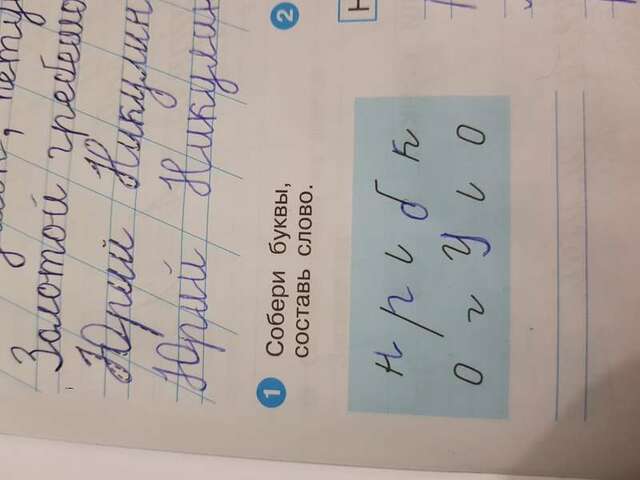 пету
Золотой гребешо
Юрий Никулин
Юрий Никулин
1 Собери буквы, 2
составь слово.
Н
н р ι б к
о г у ι о